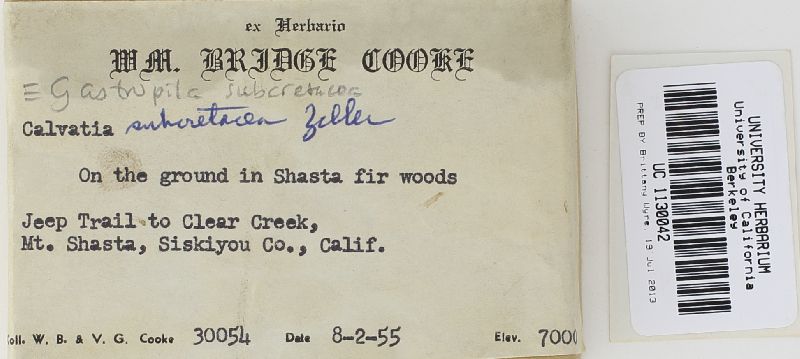 ex Herbario
WM. BRIDGE COOKE
≡ Gastropila subcretacea
Calvatia subcretacea Zeller
On the ground in Shasta fir woods
Jeep Trail to Clear Creek,
Mt. Shasta, Siskiyou Co., Calif.
oll. W. B. & V. G. Cooke 30054 Date 8-2-55 Elev. 7000
UNIVERSITY HERBARIUM
University of California
Berkeley
UC 1130042
PREP BY Brittany 19 Jul 2013